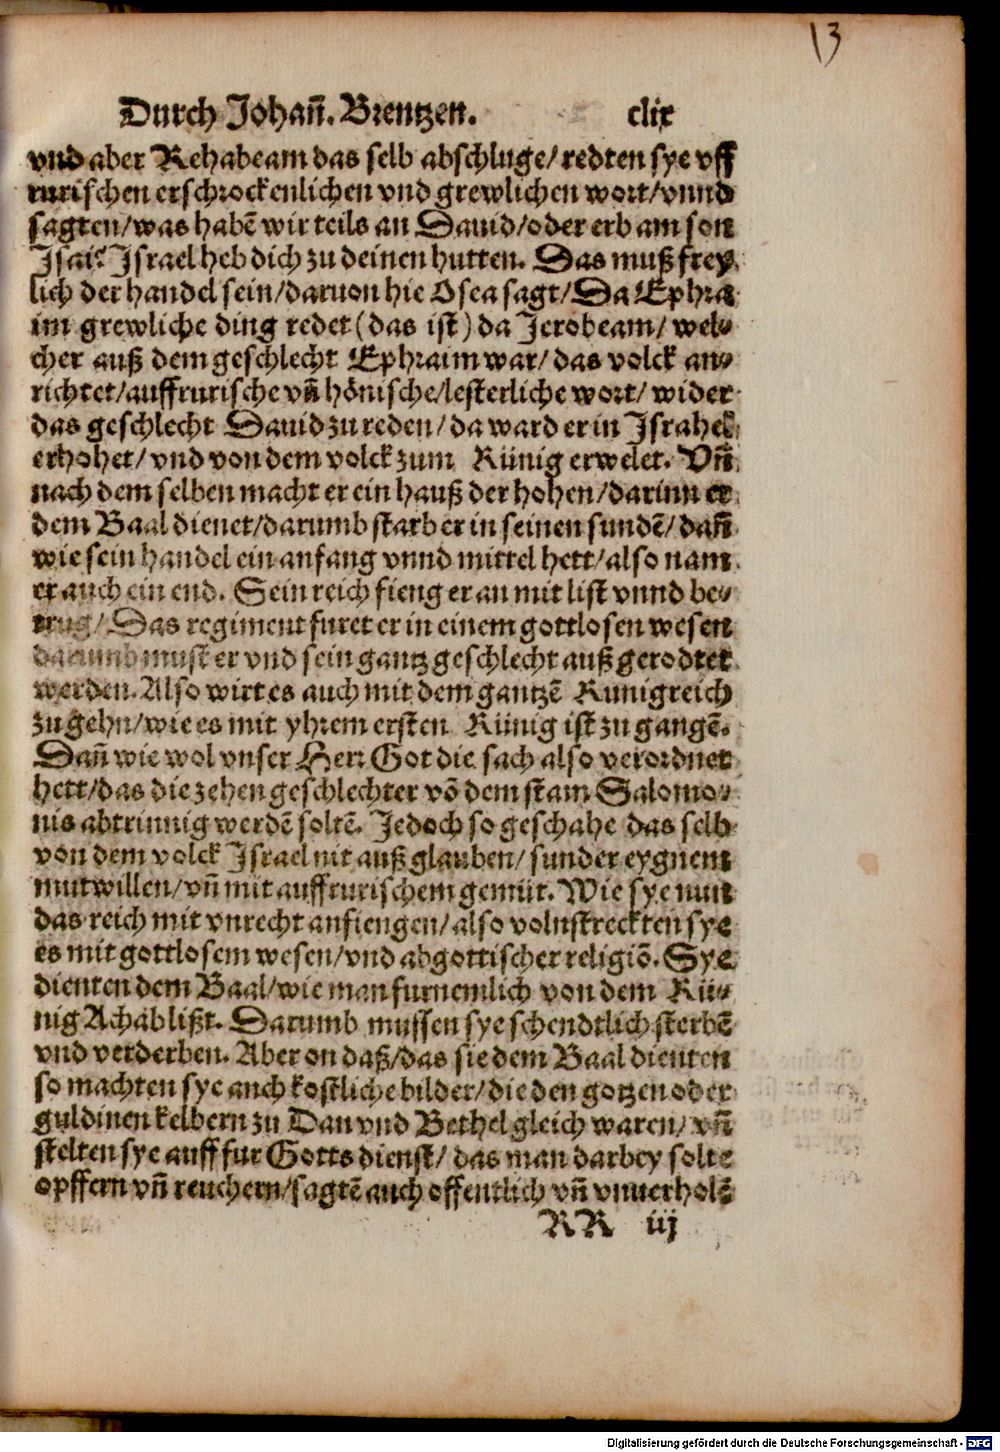 13
Durch Johañ. Brentzen. clix
vnd aber Rehabeam das selb abschluge/ redten sye vff
rurischen erschrockenlichen vnd grewlichen wort/vnnd
sagten/was habē wir teils an Dauid/oder erb am son
Isai? Israel heb dich zu deinen hutten. Das muß frey
lich der handel sein/daruon hie Osea sagt/Da Ephra
im grewliche ding redet (das ist) da Jerobeam/ wel⸗
cher auß dem geschlecht Ephraim war/ das volck an⸗
richtet/auffrurische vñ hönische/lesterliche wort/ wider
das geschlecht Dauid zu reden/ da ward er in Israhel
erhohet/ vnd von dem volck zum Künig erwelet. Vñ
nach dem selben macht er ein hauß der hohen/darinn er
dem Baal dienet/darumb starb er in seinen sundē/ dañ
wie sein handel ein anfang vnnd mittel hett/also nam
er auch ein end. Sein reich fieng er an mit list vnnd be⸗
trug/ Das regiment furet er in einem gottlosen wesen
darumb must er vnd sein gantz geschlecht auß gerodtet
werden. Also wirt es auch mit dem gantzē Kunigreich
zu gehn/wie es mit yhrem ersten Künig ist zu gangē.
Dañ wie wol vnser Herr Got die sach also verordnet
hett/das die zehen geschlechter vō dem stam Salomo⸗
nis abtrinnig werdē soltē. Jedoch so geschahe das selb
von dem volck Israel nit auß glauben/ sunder eygnem
mutwillen/vñ mit auffrurischem gemüt. Wie sye nun
das reich mit vnrecht anfiengen/also volnstreckten sye
es mit gottlosem wesen/vnd abgottischer religiō. Sye
dienten dem Baal/wie man furnemlich von dem Kü⸗
nig Achab lißt. Darumb mussen sye schendtlich sterbē
vnd verderben. Aber on daß/das sie dem Baal dienten
so machten sye auch kostliche bilder/die den gotzen oder
guldinen kelbern zu Dan vnd Bethel gleich waren/ vñ
stelten sye auff fur Gotts dienst/ das man darbey solte
opffern vñ reuchern/sagtē auch offentlich vñ vnuerholē
RR iij
Digitalisierung gefördert durch die Deutsche Forschungsgemeinschaft - DFG